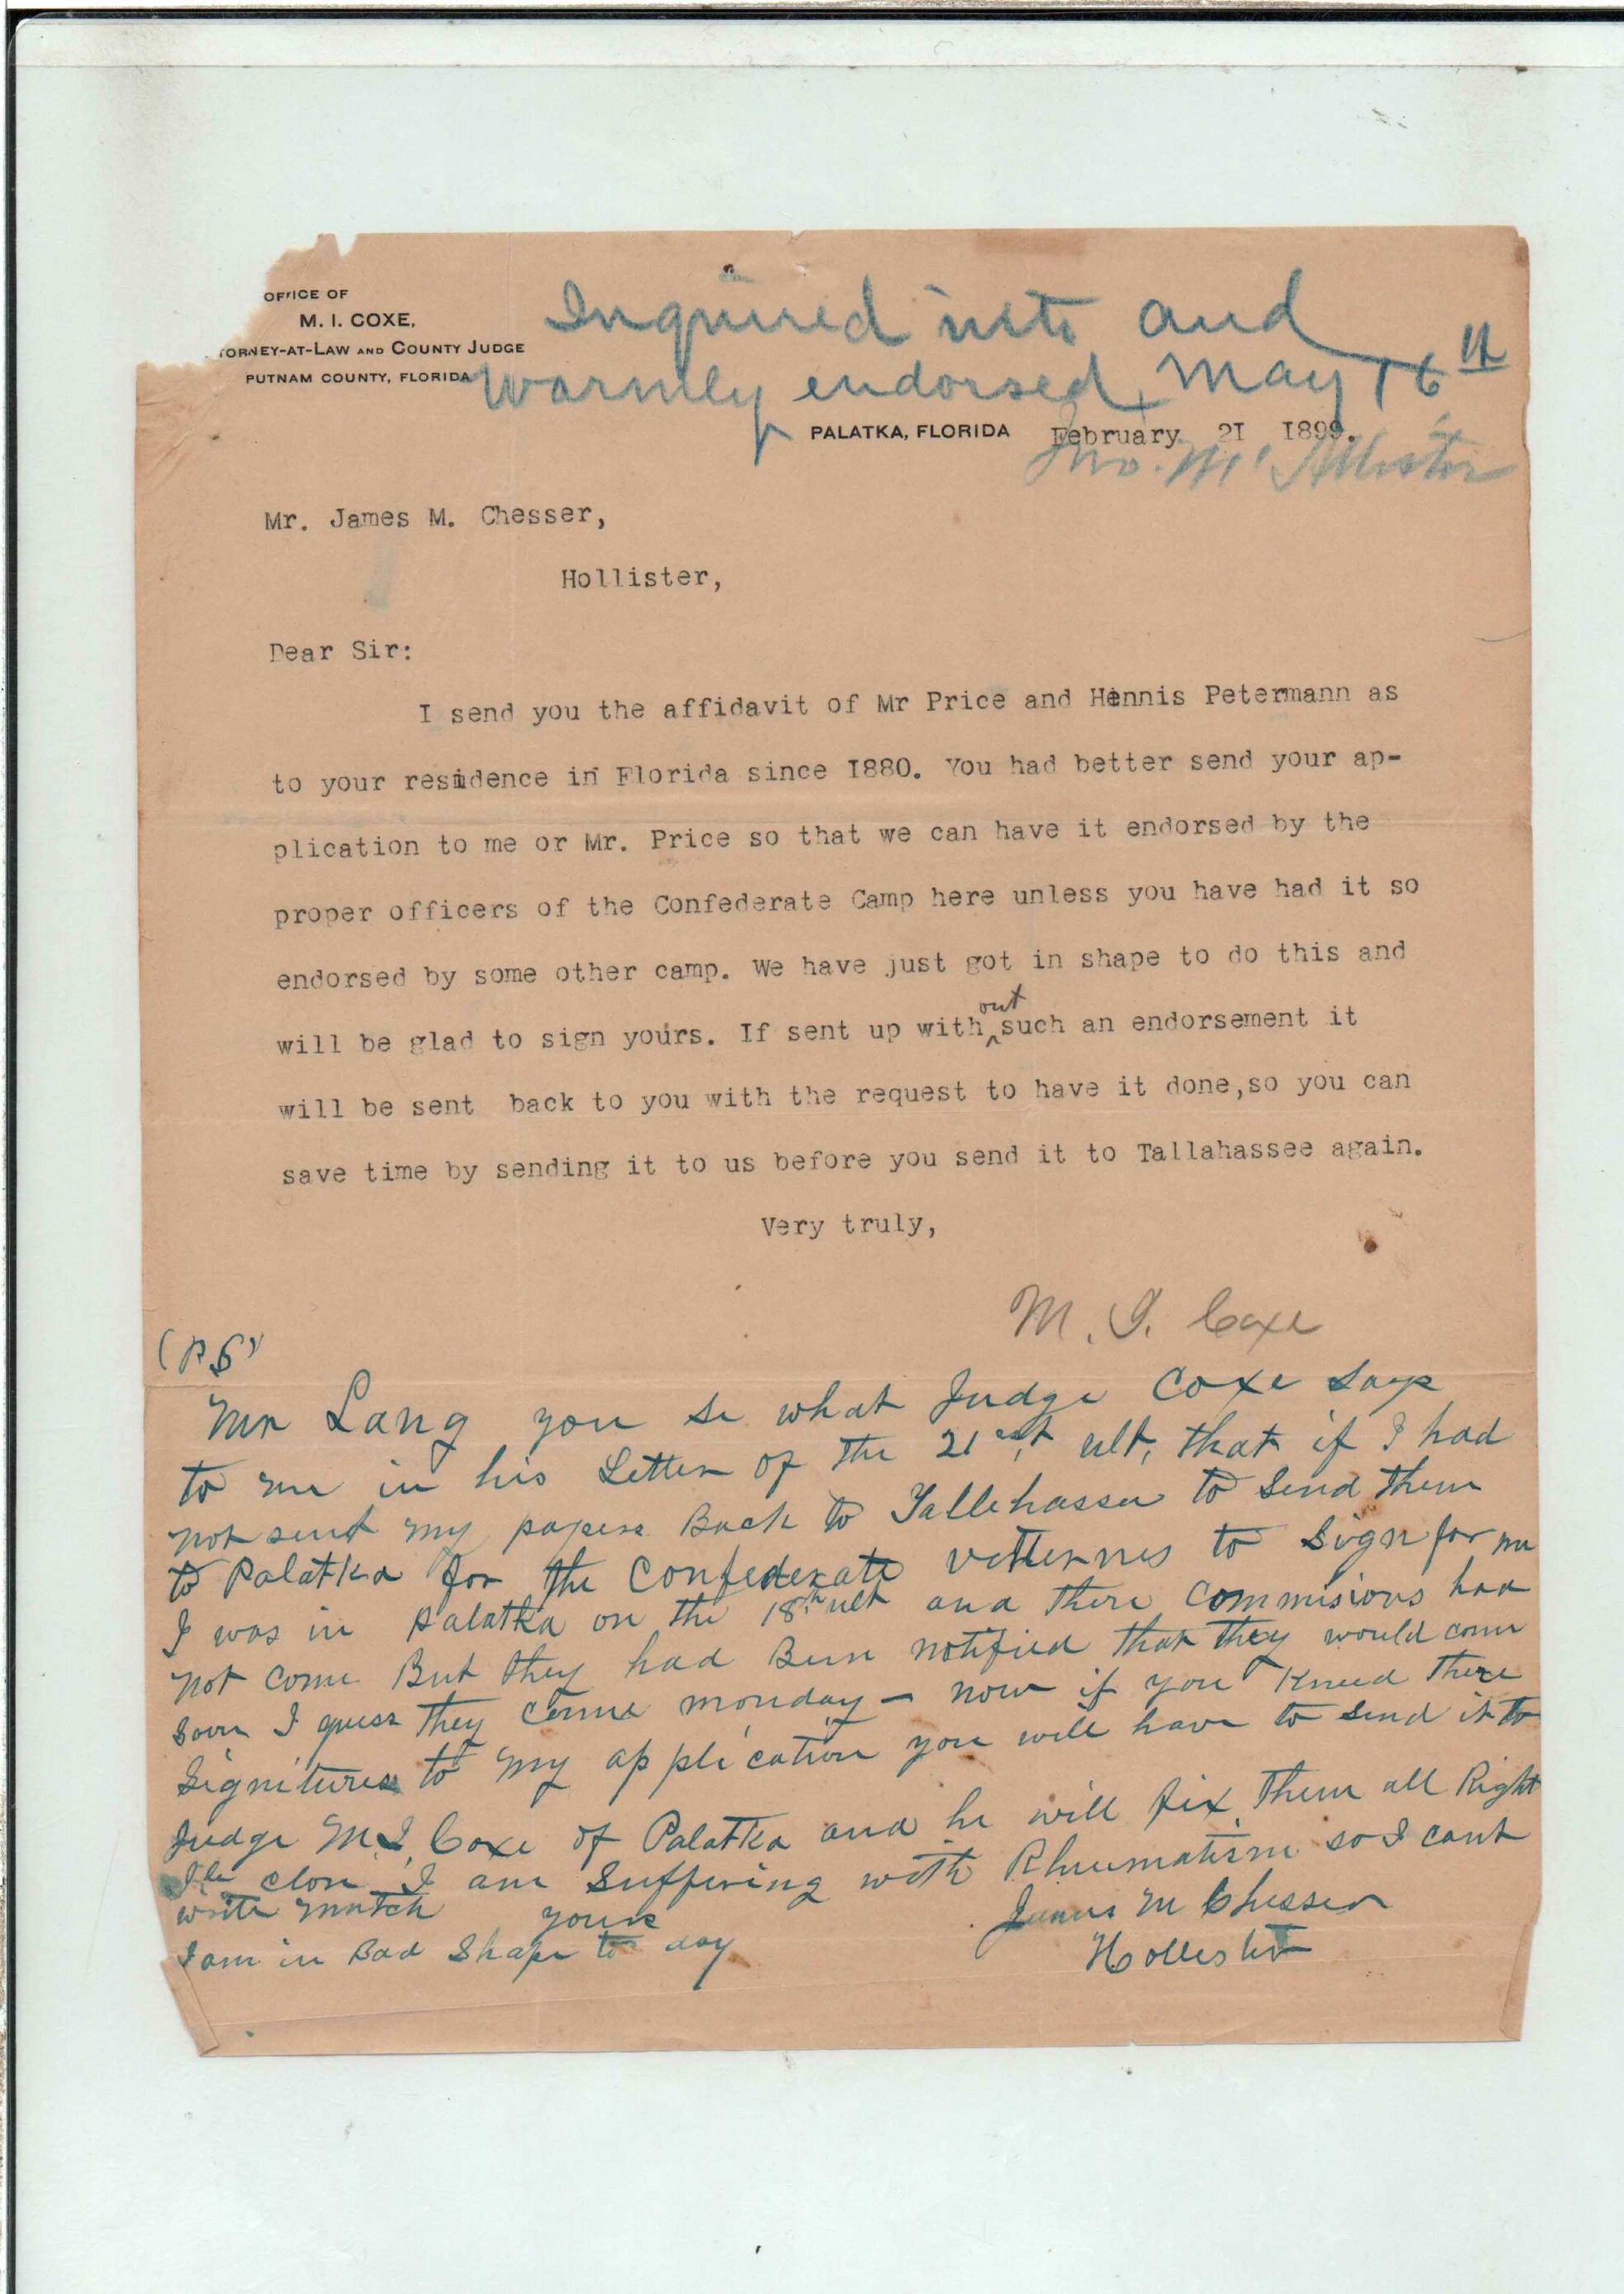 OFFICE OF
M. I. COXE,
TORNEY-AT-LAW AND COUNTY JUDGE
PUTNAM COUNTY, FLORIDA
Inquired into and
Warmly endorsed, May 16th
PALATKA, FLORIDA February 21 1899.
Jno. McAllister
Mr. James M. Chesser,
Hollister,
Dear Sir:
I send you the affidavit of Mr Price and Hennis Petermann as
to your residence in Florida since 1880. You had better send your ap-
plication to me or Mr. Price so that we can have it endorsed by the
proper officers of the Confederate Camp here unless you have had it so
endorsed by some other camp. We have just got in shape to do this and
will be glad to sign yours. If sent up with out such an endorsement it
will be sent back to you with the request to have it done,so you can
save time by sending it to us before you send it to Tallahassee again.
Very truly,
M. I. Coxe
(P S)
Mr Lang you se what Judge Coxe says
to me in his Letter of the 21 est ult, that if I had
not sent my papers Back to Tallehassee to Send them
to Palatka for the Confederate vetternes to Sign for me
I was in Palatka on the 18th ult and there Commisions had
not Come But they had Been notified that they would come
Soon I guess they Come monday - now if you Kneed there
Signitures to my application you will have to Send it to
Judge M. I. Coxe of Palatka and he will fix them all Right
I le close I am Suffering with Rheumatism so I cant
write mutch yours James M Chesser
I am in Bad Shape to day Hollister